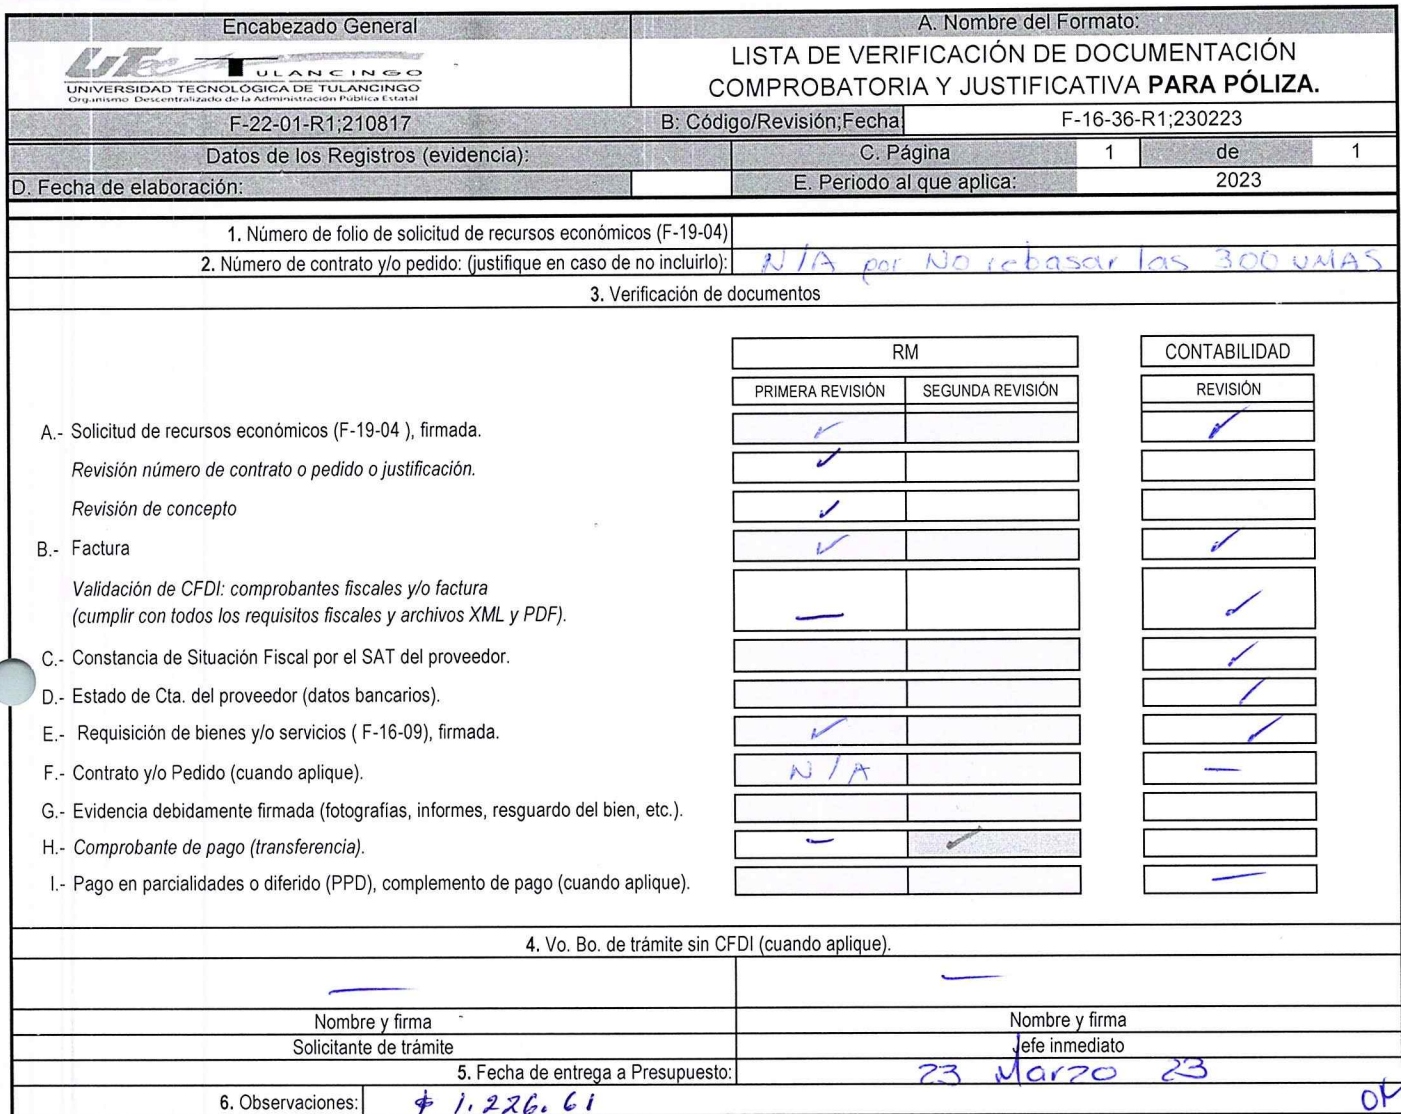 Encabezado General
A. Nombre del Formato:
UTec TULANCINGO
UNIVERSIDAD TECNOLÓGICA DE TULANCINGO
Organismo Descentralizado de la Administración Pública Estatal
LISTA DE VERIFICACIÓN DE DOCUMENTACIÓN
COMPROBATORIA Y JUSTIFICATIVA PARA PÓLIZA.
F-22-01-R1;210817
B: Código/Revisión;Fecha
F-16-36-R1;230223
Datos de los Registros (evidencia):
C. Página 1 de 1
D. Fecha de elaboración:
E. Periodo al que aplica: 2023
1. Número de folio de solicitud de recursos económicos (F-19-04)
2. Número de contrato y/o pedido: (justifique en caso de no incluirlo): N/A por No rebasar las 300 UMAS
3. Verificación de documentos
RM
CONTABILIDAD
PRIMERA REVISIÓN
SEGUNDA REVISIÓN
REVISIÓN
A.- Solicitud de recursos económicos (F-19-04 ), firmada. ✓ ✓
Revisión número de contrato o pedido o justificación. ✓
Revisión de concepto ✓
B.- Factura ✓ ✓
Validación de CFDI: comprobantes fiscales y/o factura
(cumplir con todos los requisitos fiscales y archivos XML y PDF). — ✓
C.- Constancia de Situación Fiscal por el SAT del proveedor. ✓
D.- Estado de Cta. del proveedor (datos bancarios). ✓
E.- Requisición de bienes y/o servicios ( F-16-09), firmada. ✓ ✓
F.- Contrato y/o Pedido (cuando aplique). N/A —
G.- Evidencia debidamente firmada (fotografías, informes, resguardo del bien, etc.).
H.- Comprobante de pago (transferencia). — ✓
I.- Pago en parcialidades o diferido (PPD), complemento de pago (cuando aplique). —
4. Vo. Bo. de trámite sin CFDI (cuando aplique).
— —
Nombre y firma
Nombre y firma
Solicitante de trámite
Jefe inmediato
5. Fecha de entrega a Presupuesto: 23 Marzo 23
6. Observaciones: $ 1,226.61 OK